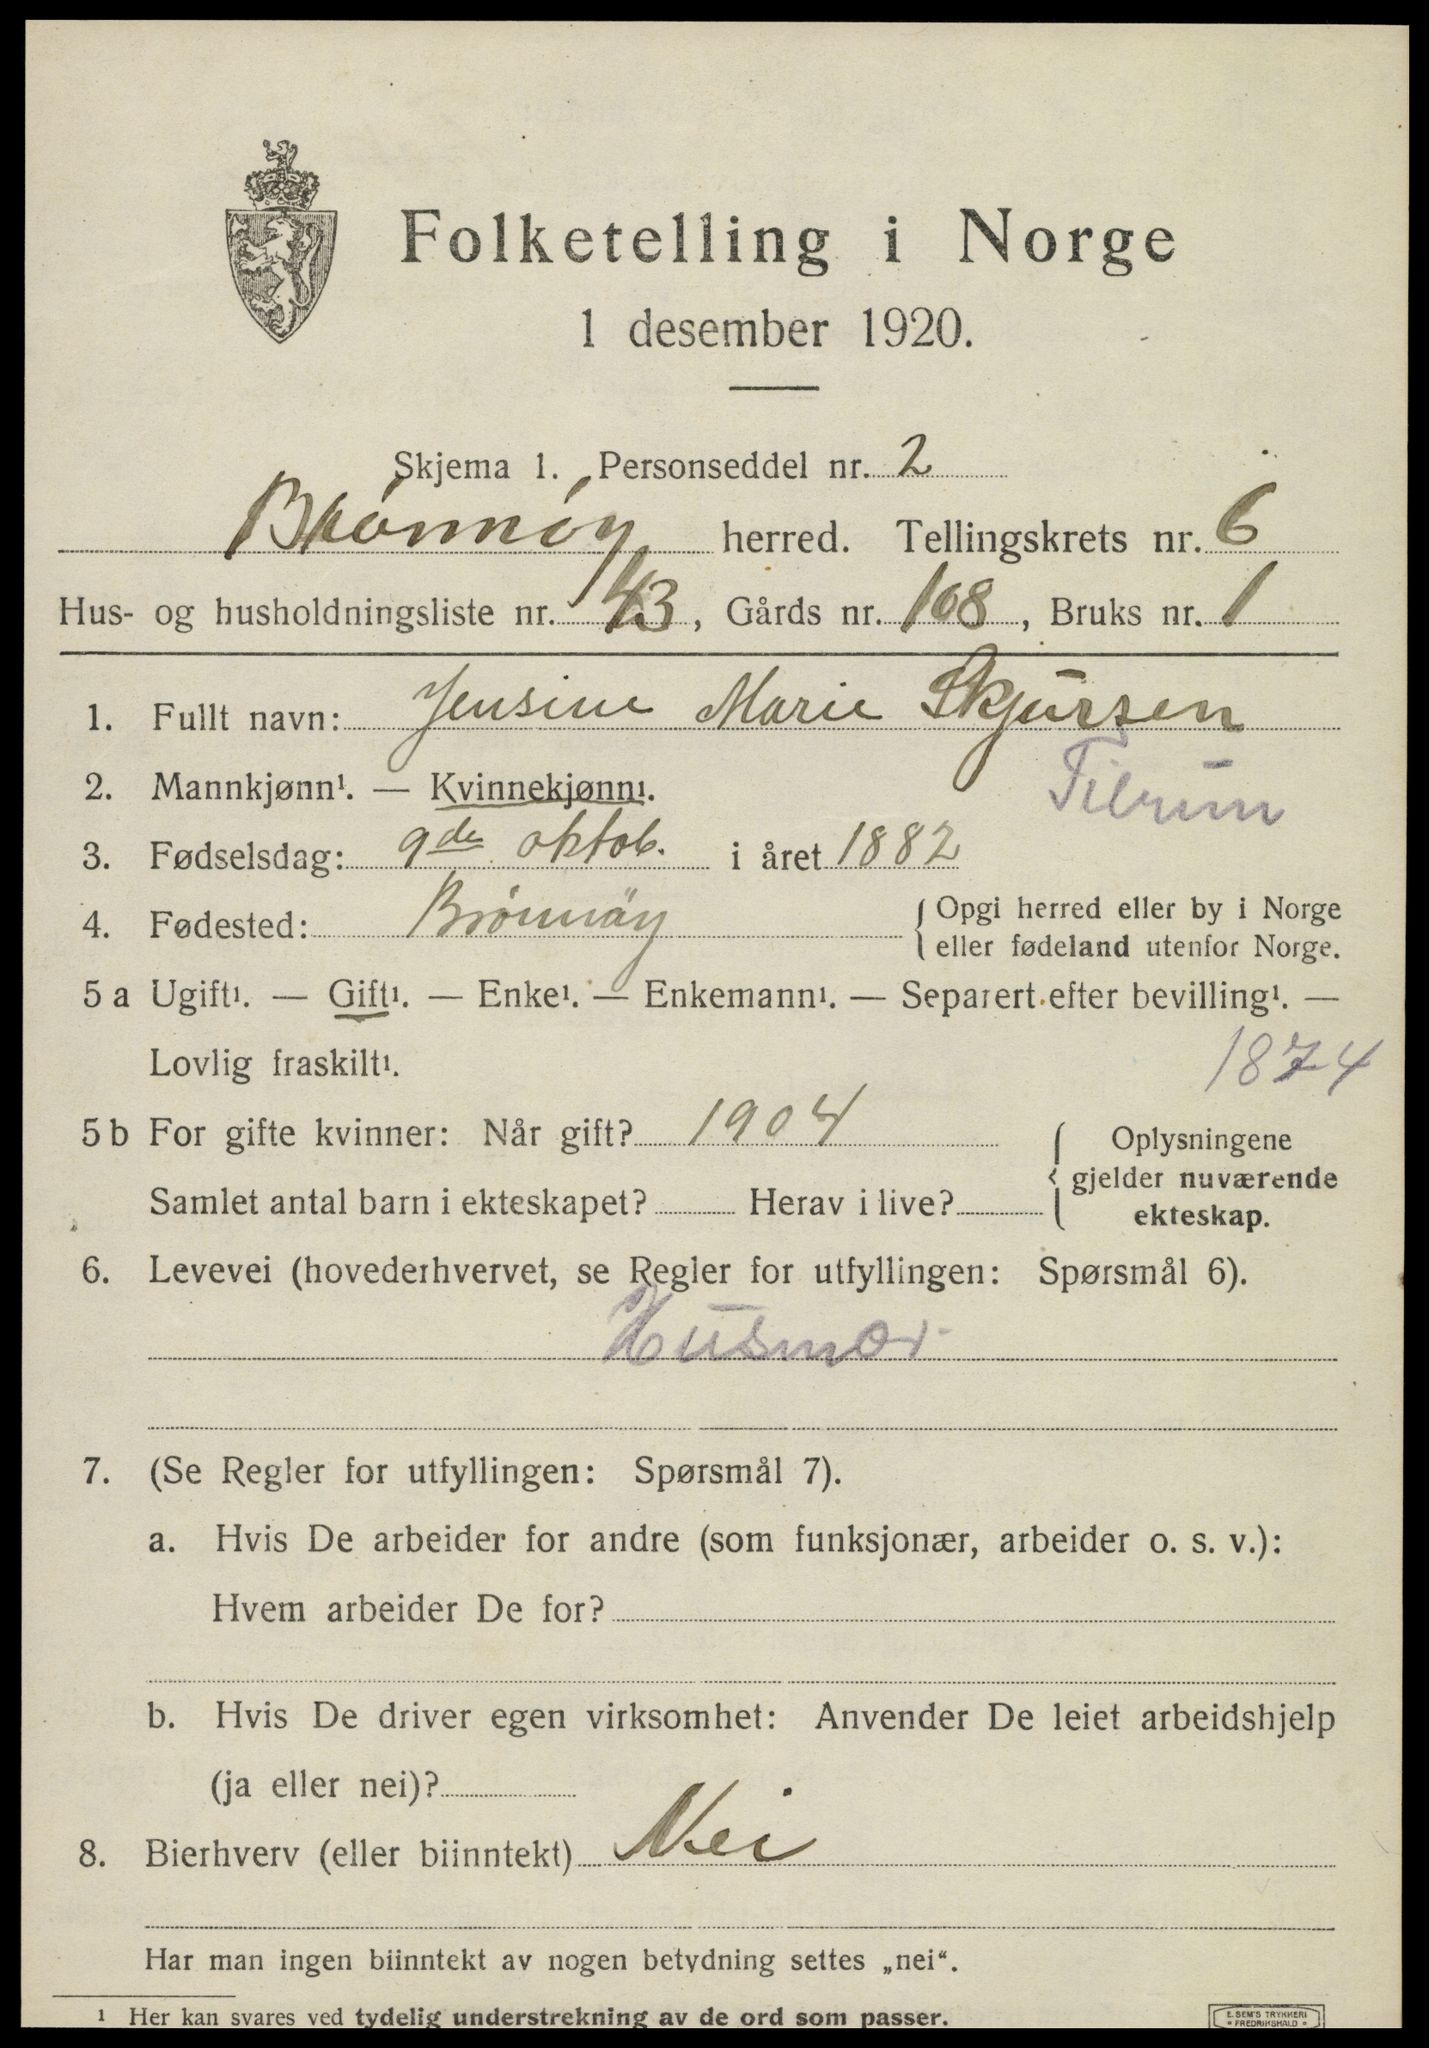 Folketelling i Norge
1 desember 1920.
Skjema 1. Personseddel nr. 2
Brönnöy herred. Tellingskrets nr. 6
Hus- og husholdningsliste nr. 43, Gårds nr. 108, Bruks nr. 1
1. Fullt navn: Jensine Marie Skjursen
Tilrum
2. Mannkjønn¹. — Kvinnekjønn¹.
3. Fødselsdag: 9de oktob. i året 1882
4. Fødested: Brönnöy { Opgi herred eller by i Norge
eller fødeland utenfor Norge.
5 a Ugift¹. — Gift¹. — Enke¹. — Enkemann¹. — Separert efter bevilling¹. —
Lovlig fraskilt¹.
1874
5 b For gifte kvinner: Når gift? 1904
Samlet antal barn i ekteskapet? Herav i live?
{ Oplysningene
gjelder nuværende
ekteskap.
6. Levevei (hovederhvervet, se Regler for utfyllingen: Spørsmål 6).
Husmor
7. (Se Regler for utfyllingen: Spørsmål 7).
a. Hvis De arbeider for andre (som funksjonær, arbeider o. s. v.):
Hvem arbeider De for?
b. Hvis De driver egen virksomhet: Anvender De leiet arbeidshjelp
(ja eller nei)?
8. Bierhverv (eller biinntekt) Nei
Har man ingen biinntekt av nogen betydning settes „nei“.
¹ Her kan svares ved tydelig understrekning av de ord som passer.
E. SEM'S TRYKKERI
FREDRIKSHALD